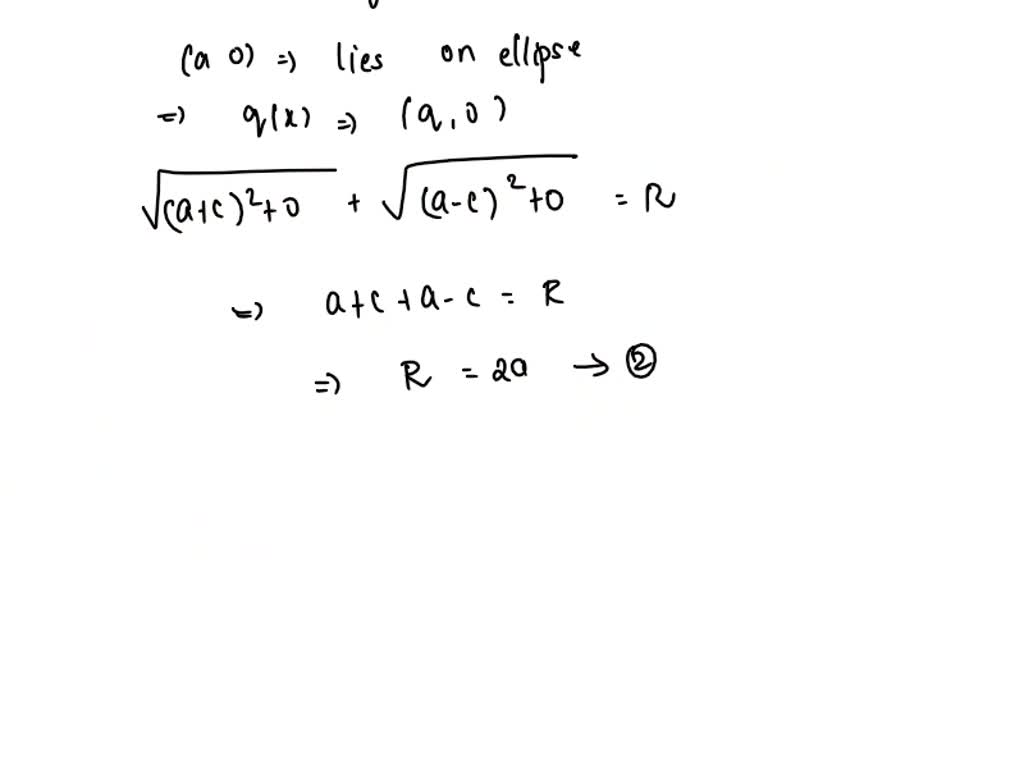 (a 0) ⇒ lies on ellipse
⇒ q(x) ⇒ (q, 0)
√((a+c)²+0) + √((a-c)²+0) = R
⇒ a+c+a-c = R
⇒ R = 2a → ②